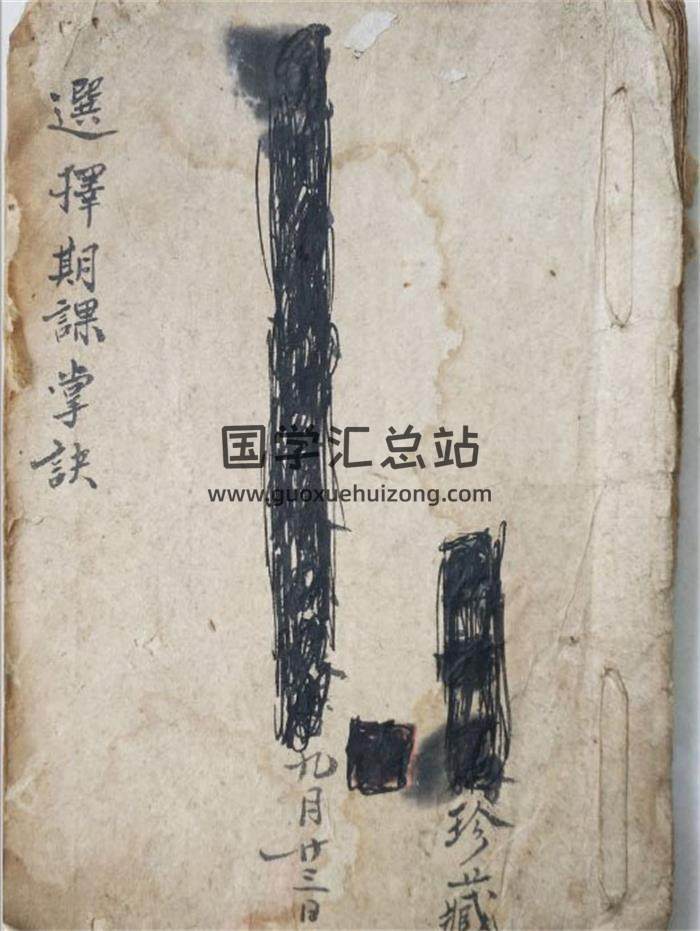 選擇期課掌訣
九月廿三日
珍藏
国学汇总站
www.guoxuehuizong.com